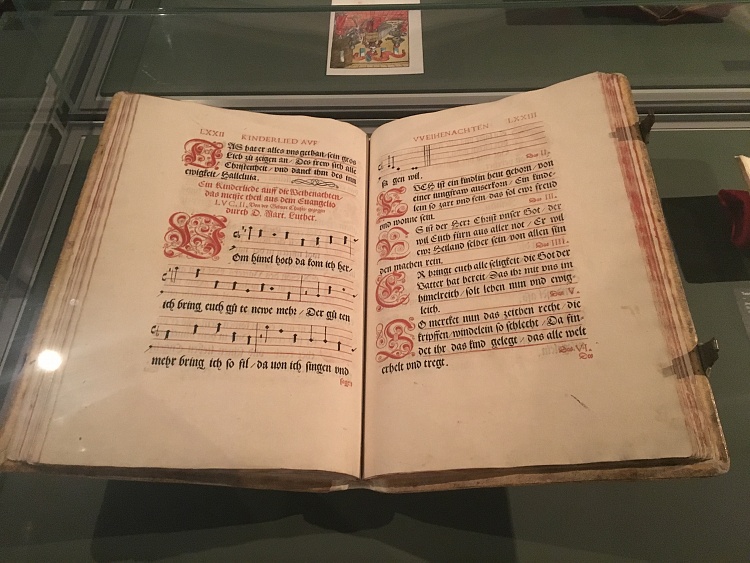 LXXII KINDERLIED AVF
DAS hat er alles vns gethan / sein gros
Lieb zu zeigen an / Des frew sich alle
Christenheit / vnd danck ihm des inn
ewigkeit / Halleluia.
Ein Kinderliede auff die Weihenachten /
das meiste theil aus dem Euangelio
LVC. II.
durch D. Mart. Luther.
VOm himel hoch da kom ich her /
ich bring euch gůte newe mehr / Der gůten
mehr bring ich so fil / da uon ich singen vnd
sagē
VVEIHENACHTEN LXXIII
sagen wil.
Das II.
EVCH ist ein kindlin heut geborn / von
einer iungfraw auserkorn / Ein kinde-
lein so zart vnd fein / das sol ewr freud
vnd wonne sein.
Das III.
ES ist der Herr Christ vnser Got / der
wil Euch fürn aus aller not / Er wil
ewr Heiland selber sein / von allen sün
den machen rein.
Das IIII.
ER bringt euch alle seligkeit / die Got der
Vatter hat bereit / Das ihr mit vns im
himelreich / solt leben nun vnd ewig-
leich.
Das V.
SO mercket nun das zeichen recht / die
kripffen / windelein so schlecht / Da fin-
det ihr das kind gelegt / das alle welt
erhelt vnd tregt.
Das VI.
Des